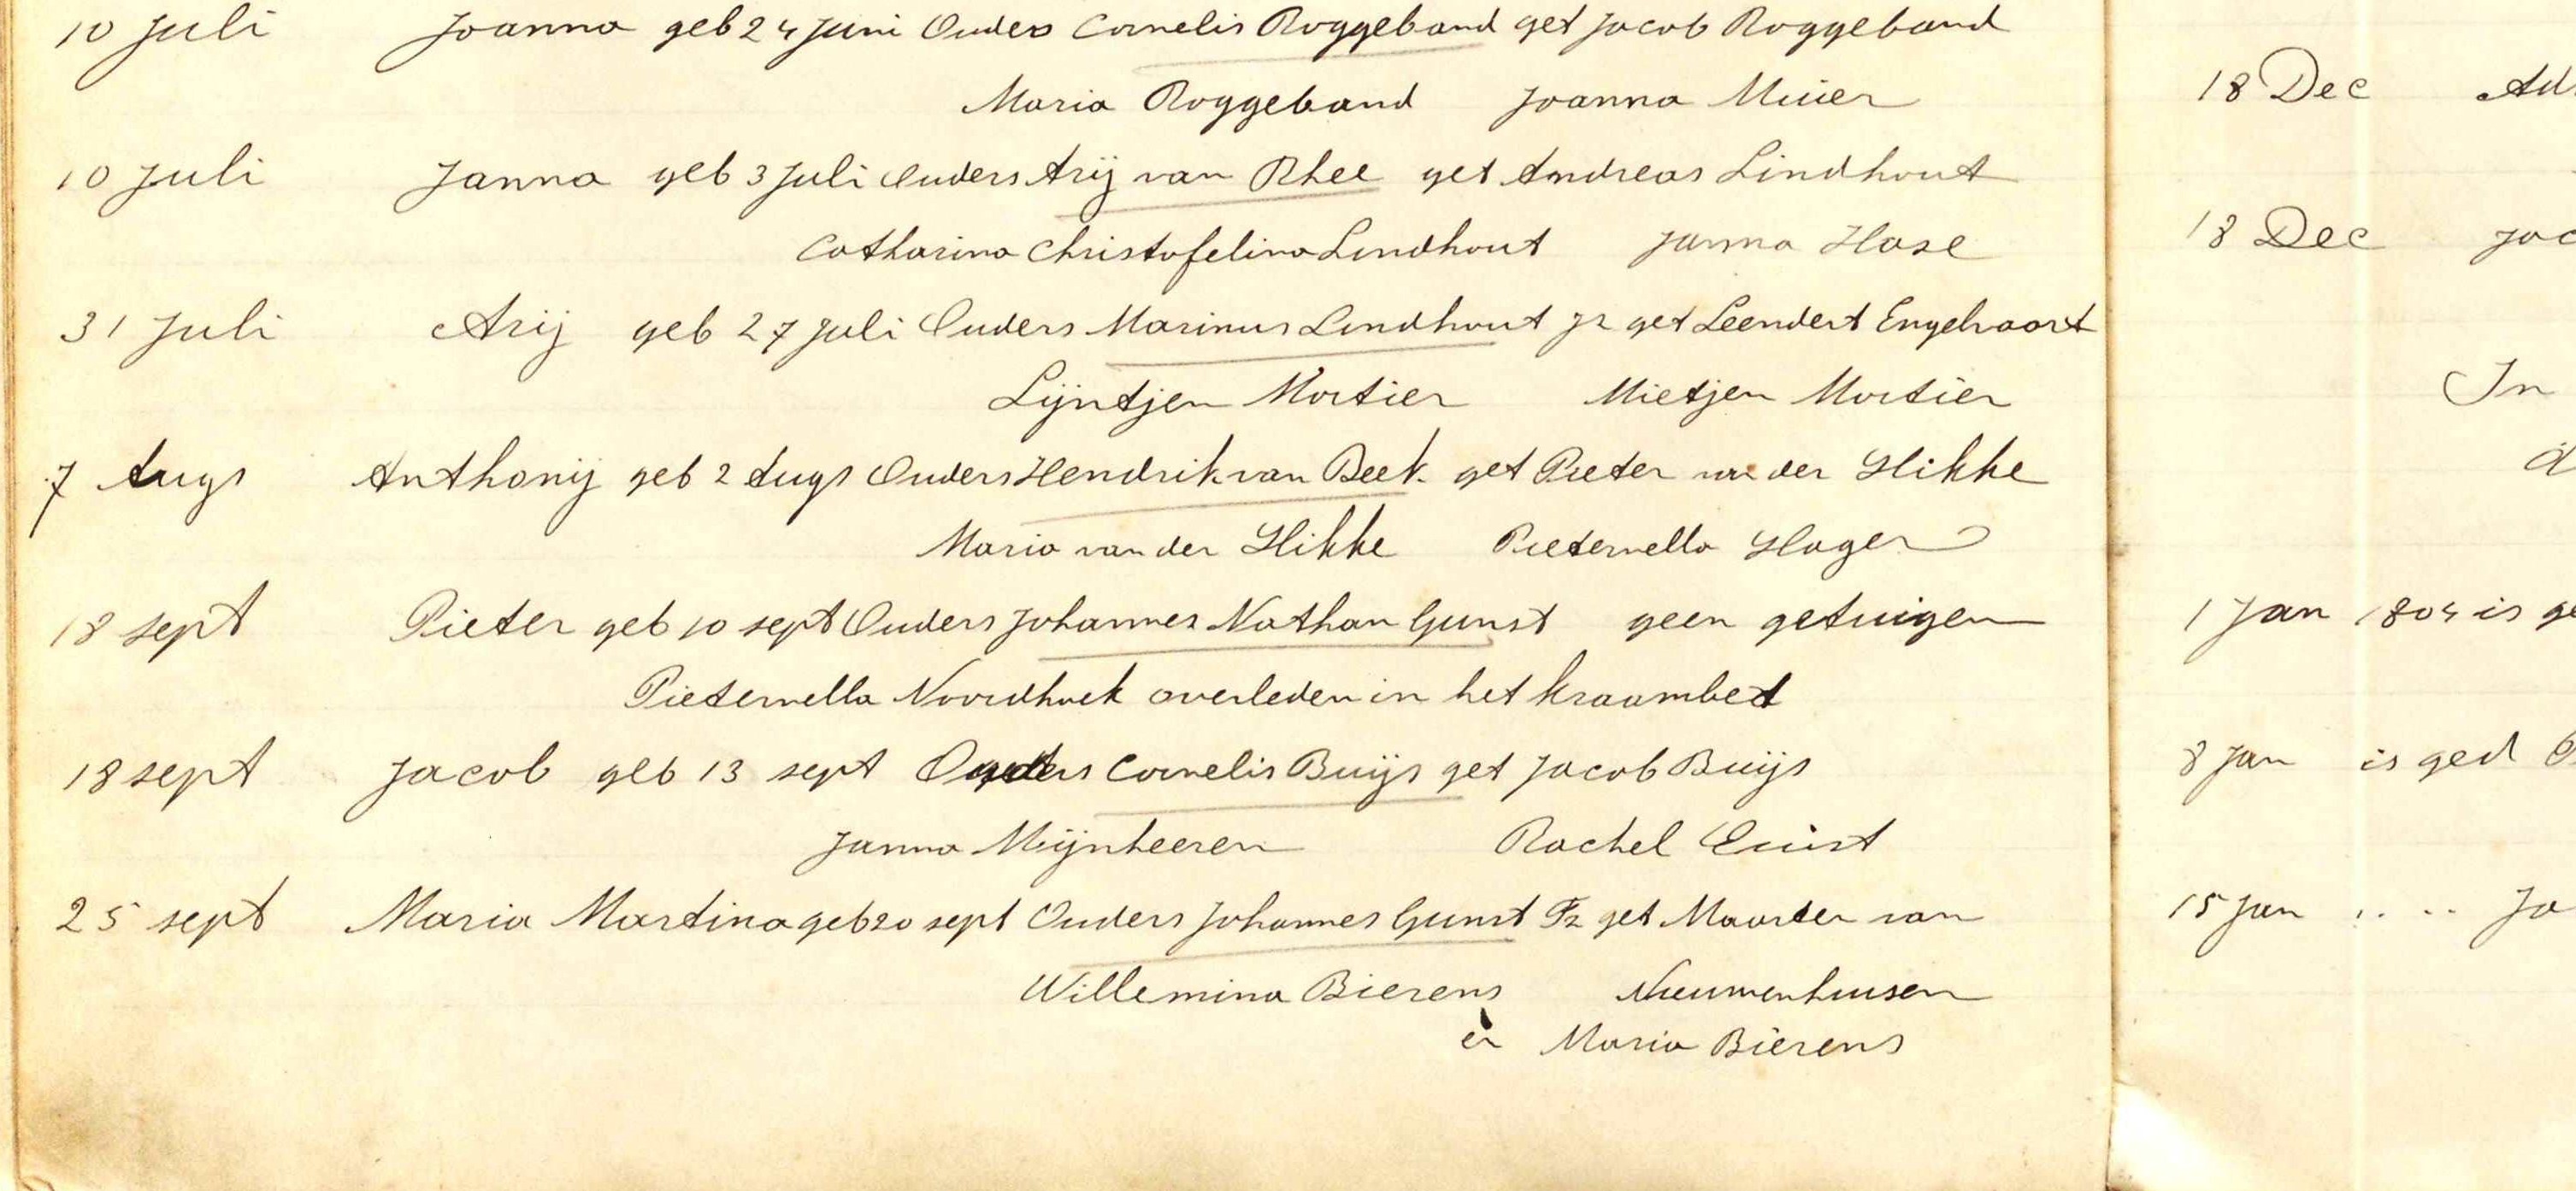 10 Juli Joanna geb 24 Juni Ouders Cornelis Roggeband get Jacob Roggeband
Maria Roggeband Joanna Muier
10 Juli Janna geb 3 Juli Ouders Arij van Rhee get Andreas Lindhout
Catharina Christofelina Lindhout Janna Hase
31 Juli Arij geb 27 Juli Ouders Marinus Lindhout Jz get Leendert Engelvaart
Lijntjen Mortier Mietjen Mortier
7 Augs Anthonij geb 2 Augs Ouders Hendrik van Beek get Pieter van der Slikke
Maria van der Slikke Pieternella Slager
18 sept Pieter geb 10 sept Ouders Johannes Nathan Gunst geen getuigen
Pieternella Noordhoek overleden in het kraambed
18 sept Jacob geb 13 sept Ouders Cornelis Buijs get Jacob Buijs
Janna Mijnheeren Rachel
25 sept Maria Martina geb 20 sept Ouders Johannes Gunst Fz get Maarten van
Willemina Bierens Nieuwenhuisen
en Maria Bierens
18 Dec Ad
18 Dec Jac
In
1 Jan 1804 is ge
8 Jan is ged
15 Jan " " Ja